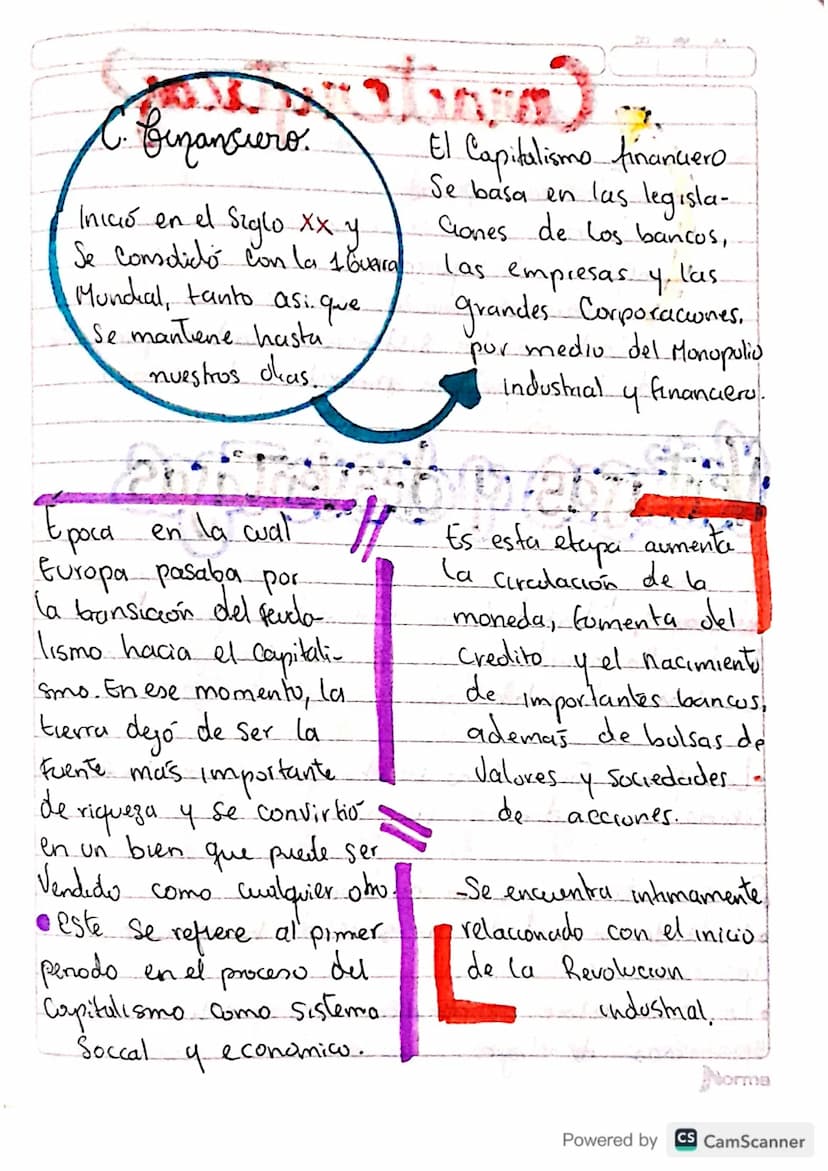 C. financiero.
Inició en el Siglo XX y
Se Consolidó con la 1 Guerra
Mundial, tanto asi que
se mantiene hasta
nuestros dias.
El Capitalismo financiero
Se basa en las legisla-
ciones de los bancos,
las empresas y las
grandes Corporaciones.
por medio del Monopolio
industrial y financiero.
Epoca en la cual
Europa pasaba por
la transición del feuda-
lismo hacia el capitali-
smo. En ese momento, la
tierra dejó de ser la
fuente más importante
de riqueza y se convirtió
en un bien que puede ser
Vendido como cualquier otro.
• este se refiere al primer
periodo en el proceso del
Capitalismo como sistema
Soccal y economico.
Es esta etapa aumenta
la circulación de la
moneda, fomenta del
credito y el nacimiento
de importantes bancos,
además de bolsas de
Valores y sociedades
de acciones.
-Se encuentra intimamente
relacionado con el inicio
de la Revolucion
industrial.
Norma
Powered by CS CamScanner